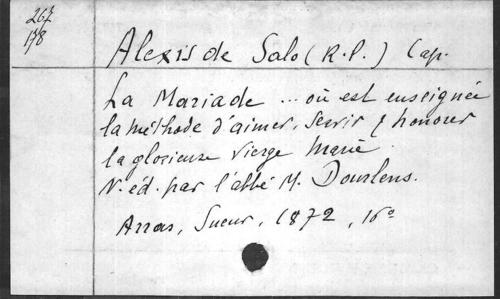 267
178
Alexis de Salo (R.P.) Cap.
La Mariade ... où est enseignée
la méthode d'aimer, servir & honorer
la glorieuse Vierge Marie.
N. éd. par l'abbé M. Dourlens.
Arras, Sueur, 1872, 16o